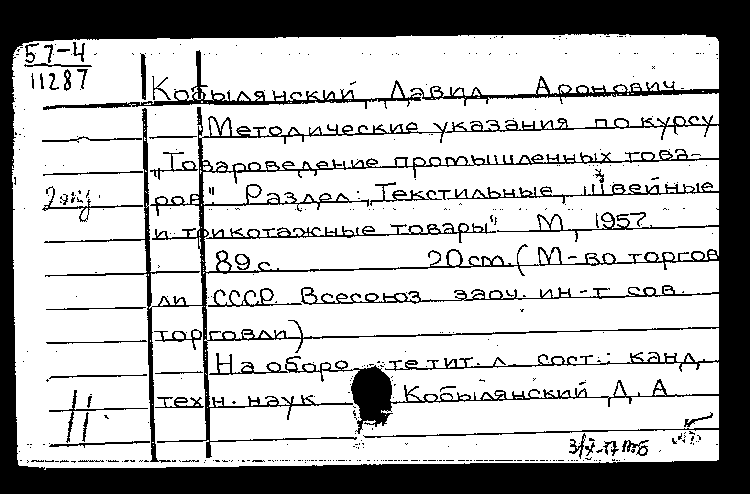 57-4
11287
Кобылянский, Давид Аронович.
Методические указания по курсу
„Товароведение промышленных това-
ров". Раздел: „Текстильные, швейные
2 экз.
и трикотажные товары". М, 1957.
89 с. 20 см. (М-во торгов
ли СССР. Всесоюз заоч. ин-т сов.
торговли)
На оборо те тит. л. сост.: канд.
техн. наук Кобылянский Д. А
11